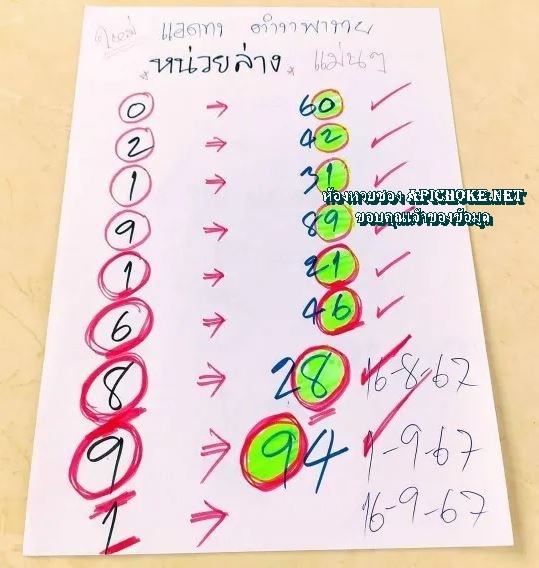 ใหม่ แอดทง ตำราพารวย
*หน่วยล่าง* แม่นๆ
0 → 60 ✓
2 → 42 ✓
1 → 31 ✓
ห้องหวยซอง APICHOKE.NET
9 → 89 ✓
ขอบคุณเจ้าของข้อมูล
1 → 21 ✓
6 → 46 ✓
8 → 28 ✓ 16-8-67
9 → 94 ✓ 1-9-67
1 → 16-9-67